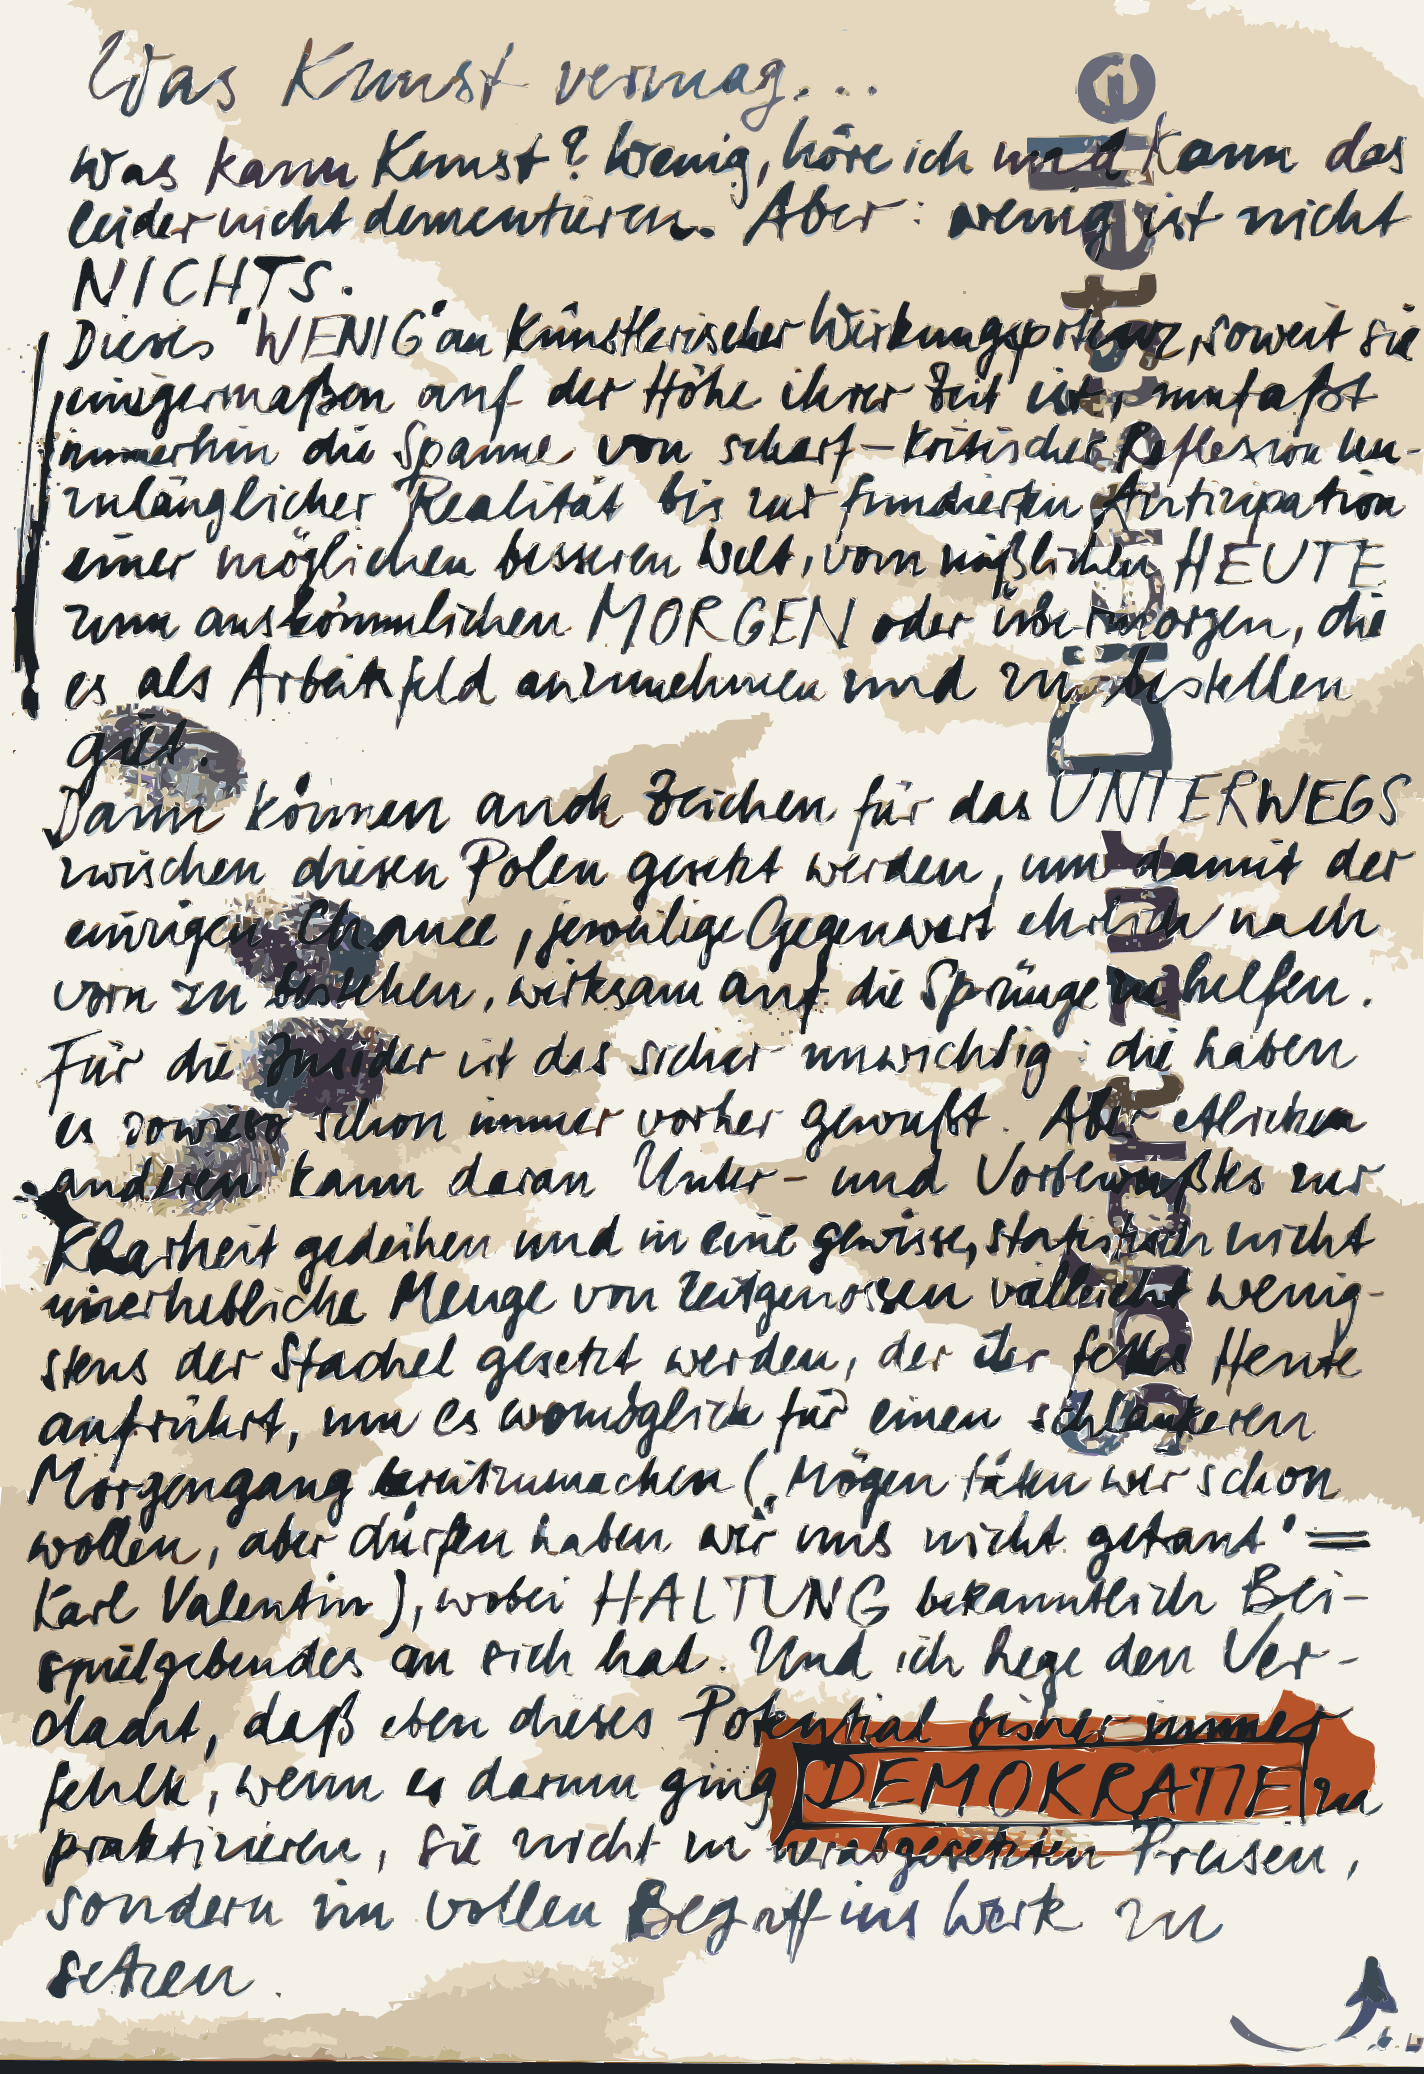 Was Kunst vermag...
Was kann Kunst? Wenig, höre ich und kann das
leider nicht dementieren. Aber: wenig ist nicht
NICHTS.
Dieses "WENIG" an künstlerischer Wirkungspotenz, soweit sie
einigermaßen auf der Höhe ihrer Zeit ist, umfaßt
immerhin die Spanne von scharf-kritischer Reflexion un-
zulänglicher Realität bis zur fundierten Antizipation
einer möglichen besseren Welt, vom mißlichen HEUTE
zum auskömmlichen MORGEN oder übermorgen, die
es als Arbeitsfeld anzunehmen und zu bestellen
gilt.
Dann können auch Zeichen für das UNTERWEGS
zwischen diesen Polen gesetzt werden, um damit der
einzigen Chance, jeweilige Gegenwart ehrlich nach
vorn zu bestehen, wirksam auf die Sprünge zu helfen.
Für die Insider ist das sicher unwichtig: die haben
es sowieso schon immer vorher gewußt. Aber etlichen
anderen kann daran Unter- und Vorbewußtes zur
Klarheit gedeihen und in eine gewisse, statistisch nicht
unerhebliche Menge von Zeitgenossen vielleicht wenig-
stens der Stachel gesetzt werden, der ihr fettes Heute
aufrührt, um es womöglich für einen schlankeren
Morgengang bereitzumachen ("Mögen täten wir schon
wollen, aber dürfen haben wir uns nicht getraut" =
Karl Valentin), wobei HALTUNG bekanntlich Bei-
spielgebendes an sich hat. Und ich hege den Ver-
dacht, daß eben dieses Potential bisher immer
fehlte, wenn es darum ging DEMOKRATIE zu
praktizieren, sie nicht zu herabgesetzten Preisen,
sondern im vollen Begriff ins Werk zu
setzen.